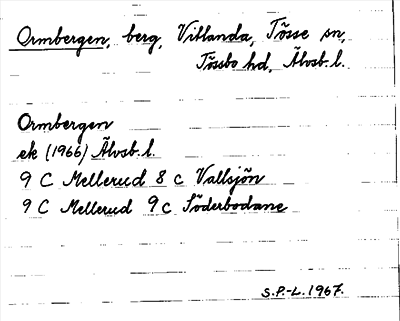 Ormbergen, berg, Villanda, Tösse sn,
Tössbo hd, Älvsb. l.
Ormbergen
ek (1966) Älvsb. l.
9 C Mellerud 8 c Vallsjön
9 C Mellerud 9 c Söderbodane
S.P.-L. 1967.